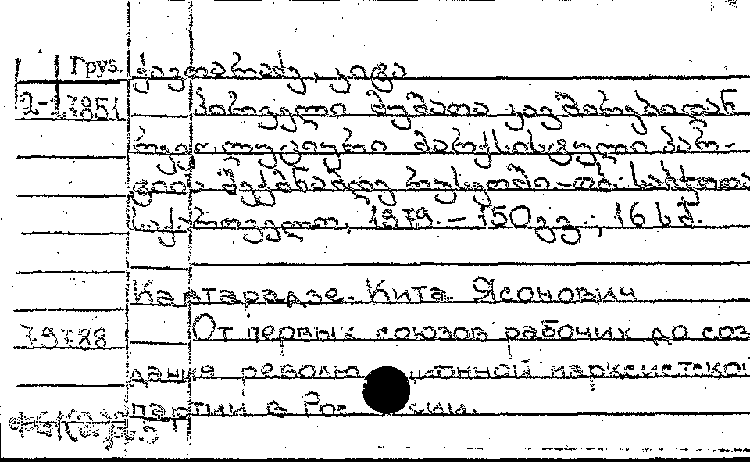 Груз. ქავთარაძე, კიტა
2-27851 პირველი მუშათა კავშირებიდან
რევოლუციური მარქსისტული პარ-
ტიის შექმნამდე რუსეთში.-თბ.: საბჭოთა
საქართველო, 1979.-150გვ.; 16 სმ.
Кавтарадзе Кита Ясонович
79788 От первых союзов рабочих до соз
дания революционной марксистской
партии в России.